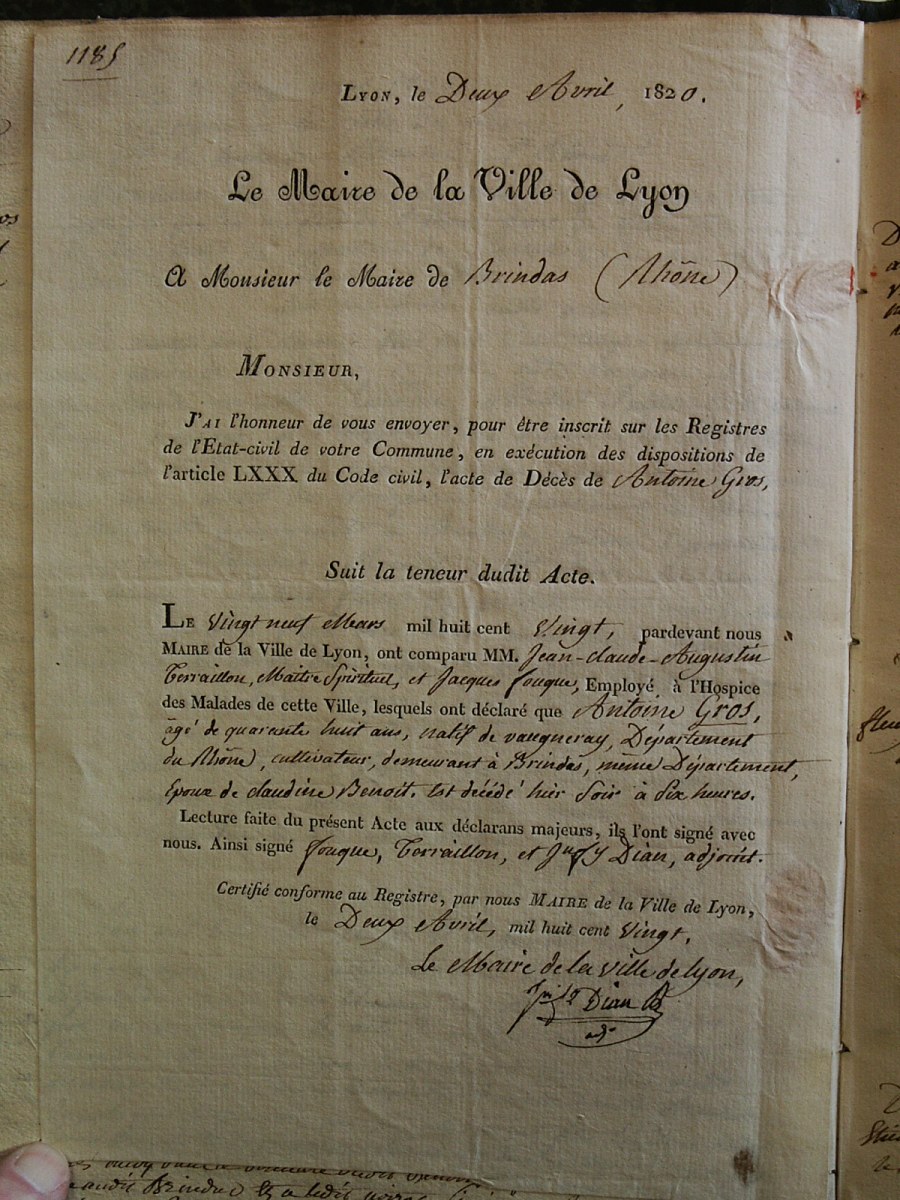 1185
Lyon, le Deux Avril, 1820.
Le Maire de la Ville de Lyon
A Monsieur le Maire de Brindas (Rhône)
Monsieur,
J'ai l'honneur de vous envoyer, pour être inscrit sur les Registres
de l'Etat-civil de votre Commune, en exécution des dispositions de
l'article LXXX du Code civil, l'acte de Décès de Antoine Gros,
Suit la teneur dudit Acte.
Le Vingt neuf Mars mil huit cent Vingt, pardevant nous
Maire de la Ville de Lyon, ont comparu MM. Jean-claude-Augustin
Terraillon, Maître Spirituel, et Jacques fouque, Employé à l'Hospice
des Malades de cette Ville, lesquels ont déclaré que Antoine Gros,
âgé de quarante huit ans, natif de vaugneray, Département
du Rhône, cultivateur, demeurant à Brindas, même Département,
Epoux de claudine Benoit. Est décédé hier Soir à Six heures.
Lecture faite du présent Acte aux déclarans majeurs, ils l'ont signé avec
nous. Ainsi signé fouque, Terraillon, et Dian, adjoint.
Certifié conforme au Registre, par nous Maire de la Ville de Lyon,
le Deux Avril, mil huit cent Vingt.
Le Maire de la ville de lyon,
Dian
adj.